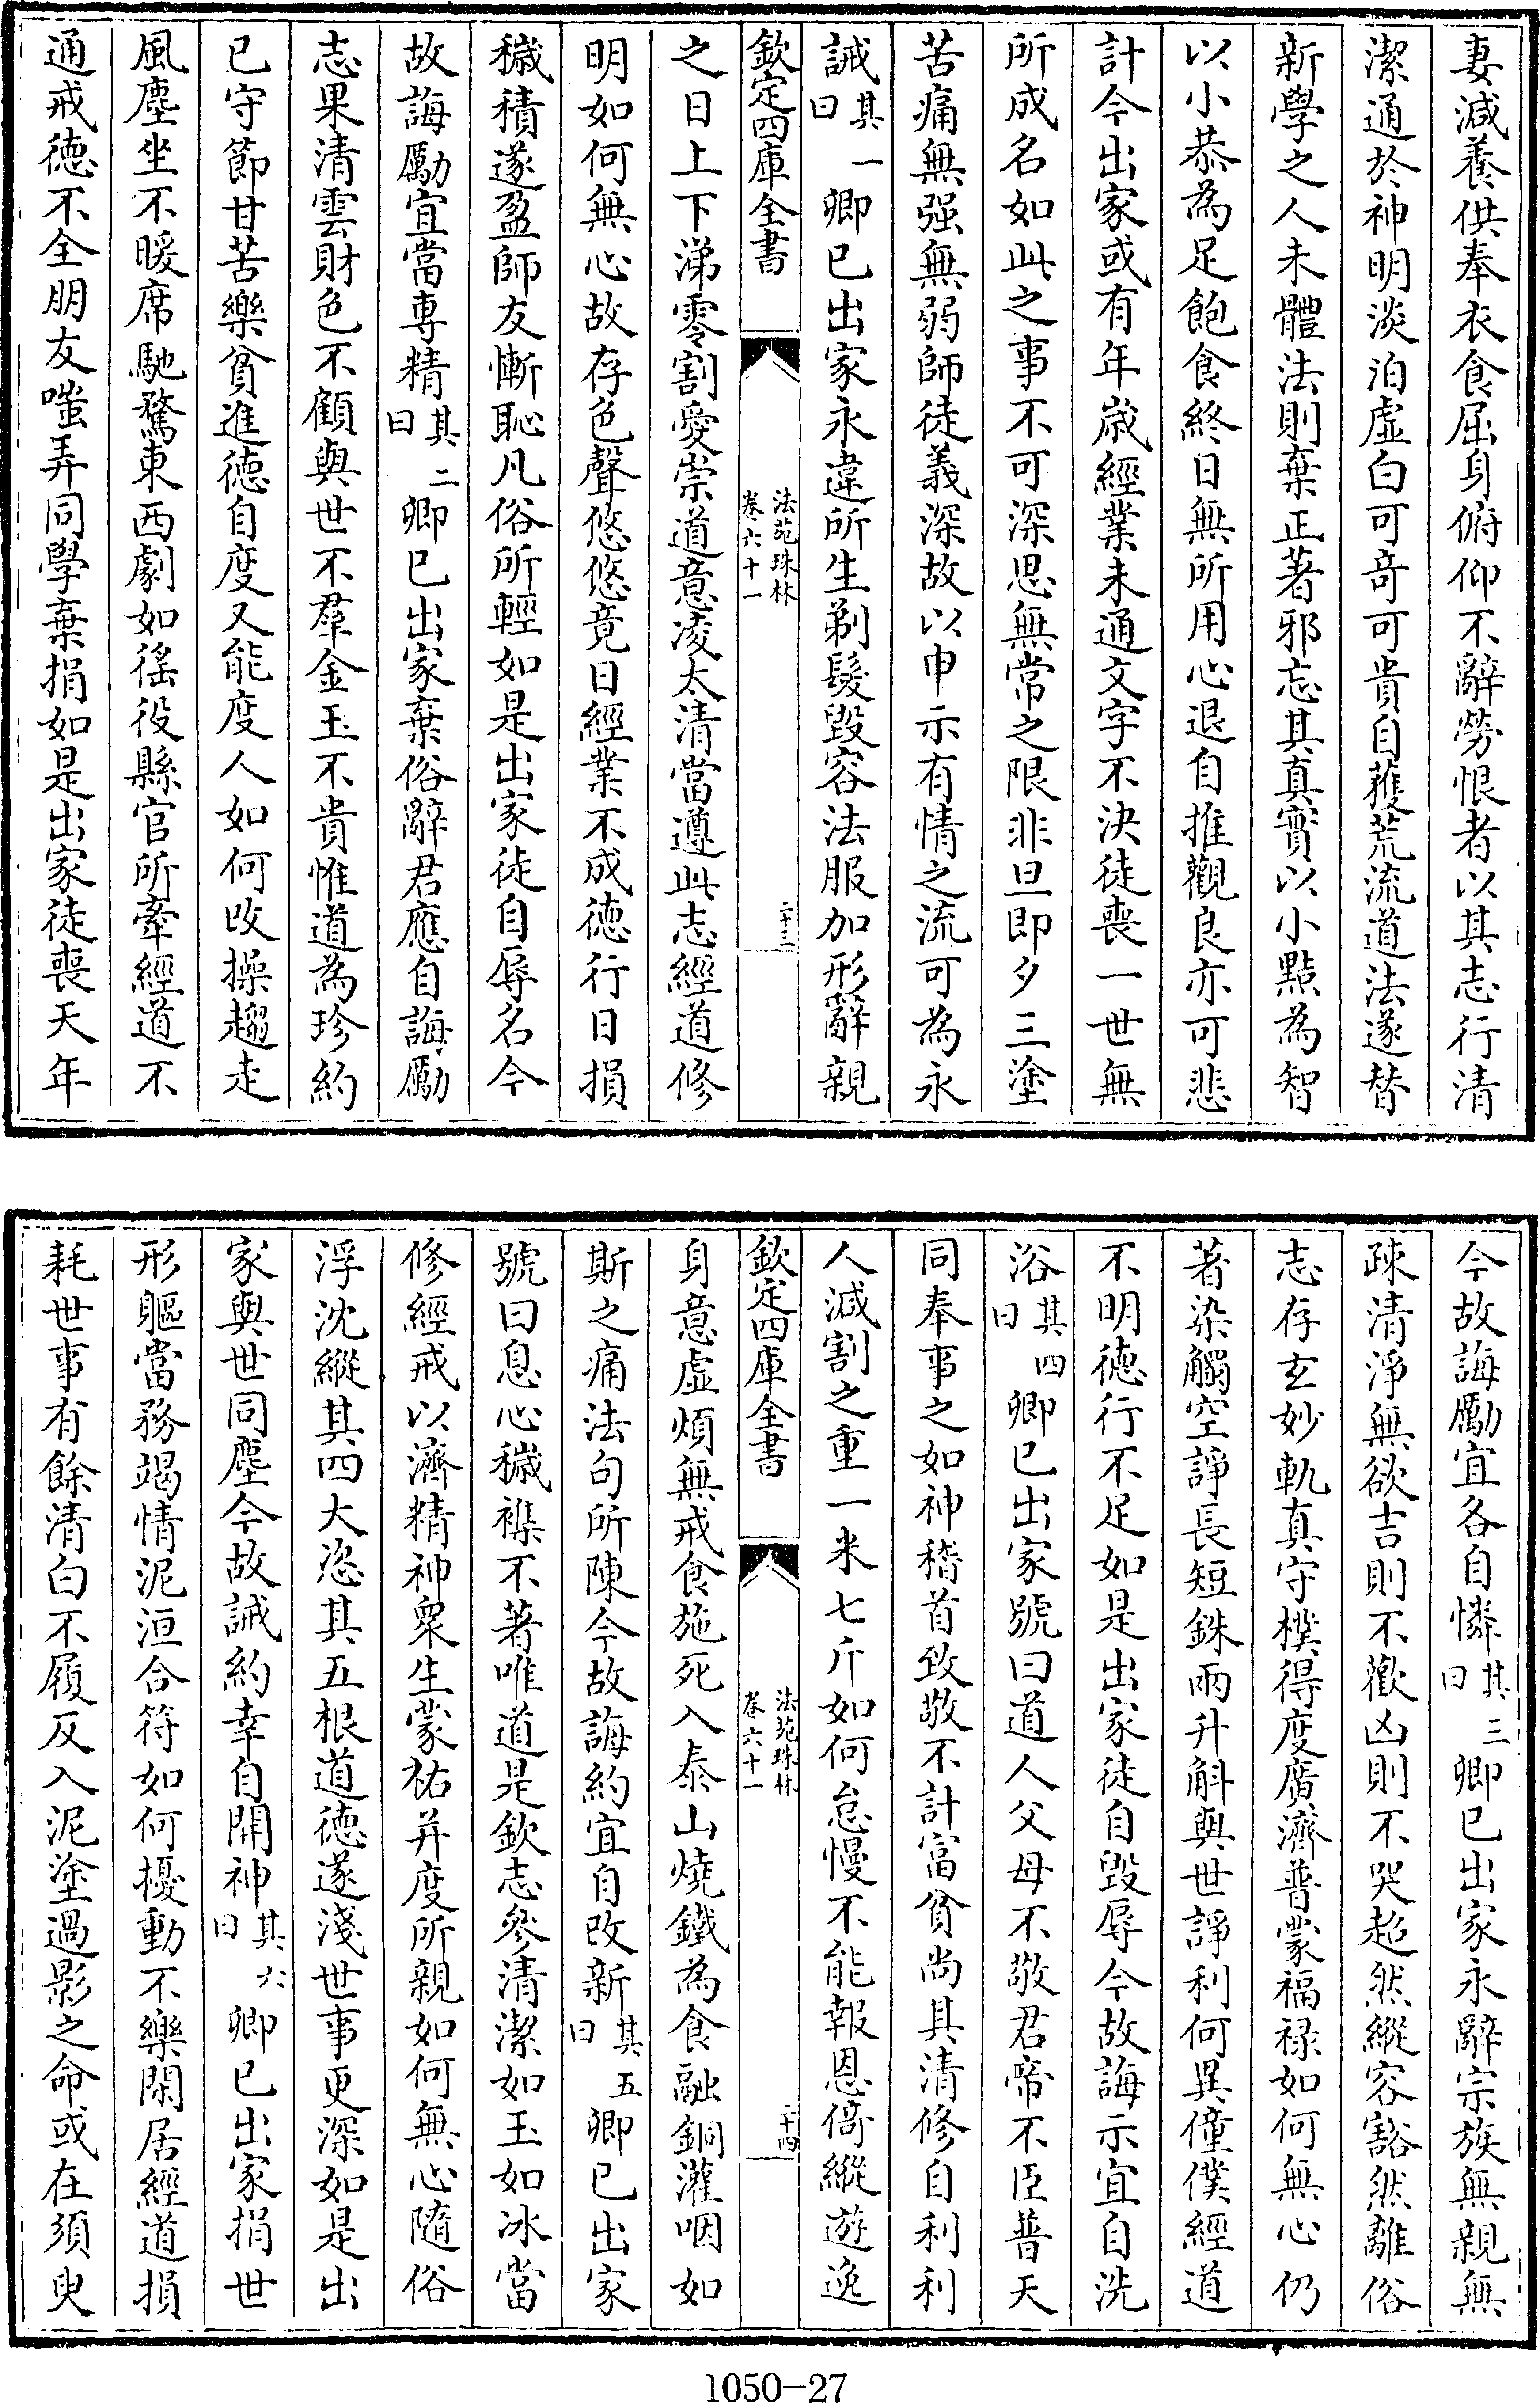 妻減養供奉衣食屈身俯仰不辭勞恨者以其志行清
潔通於神明淡泊虛白可奇可貴自獲荒流道法遂替
新學之人未體法則棄正著邪忘其真實以小黠為智
以小恭為足飽食終日無所用心退自推觀良亦可悲
計今出家或有年嵗經業未通文字不決徒喪一世無
所成名如此之事不可深思無常之限非旦即夕三塗
苦痛無强無弱師徒義深故以申示有情之流可為永
誡其一曰卿已出家永違所生剃髮毀容法服加形辭親
欽定四庫全書
法苑珠林
卷六十一
二十三
之日上下涕零割愛崇道意凌太清當遵此志經道修
明如何無心故存色聲悠悠竟日經業不成徳行日損
穢積遂盈師友慚恥凡俗所輕如是出家徒自辱名今
故誨勵宜當專精其二曰卿已出家棄俗辭君應自誨勵
志果清雲財色不顧與世不羣金玉不貴惟道為珍約
已守節甘苦樂貧進徳自度又能度人如何改操趨走
風塵坐不暖席馳騖東西劇如徭役縣官所牽經道不
通戒徳不全朋友嗤弄同學棄捐如是出家徒喪天年
今故誨勵宜各自憐其三曰卿已出家永辭宗族無親無
疎清淨無欲吉則不歡凶則不哭超然縱容豁然離俗
志存玄妙軌真守樸得度廣濟普蒙福禄如何無心仍
著染觸空諍長短銖兩升斛與世諍利何異僮僕經道
不明徳行不足如是出家徒自毀辱今故誨示宜自洗
浴其四曰卿已出家號曰道人父母不敬君帝不臣普天
同奉事之如神稽首致敬不計富貧尚其清修自利利
人減割之重一米七斤如何怠慢不能報恩倚縱遊逸
欽定四庫全書
法苑珠林
卷六十一
二十四
身意虛煩無戒食施死入泰山燒鐵為食融銅灌咽如
斯之痛法句所陳今故誨約宜自改新其五曰卿已出家
號曰息心穢襍不著唯道是欽志參清潔如玉如冰當
修經戒以濟精神衆生蒙祐并度所親如何無心隨俗
浮沈縱其四大恣其五根道徳遂淺世事更深如是出
家與世同塵今故誡約幸自開神其六曰卿已出家捐世
形軀當務竭情泥洹合符如何擾動不樂閑居經道損
耗世事有餘清白不履反入泥塗過影之命或在須臾
1050-27